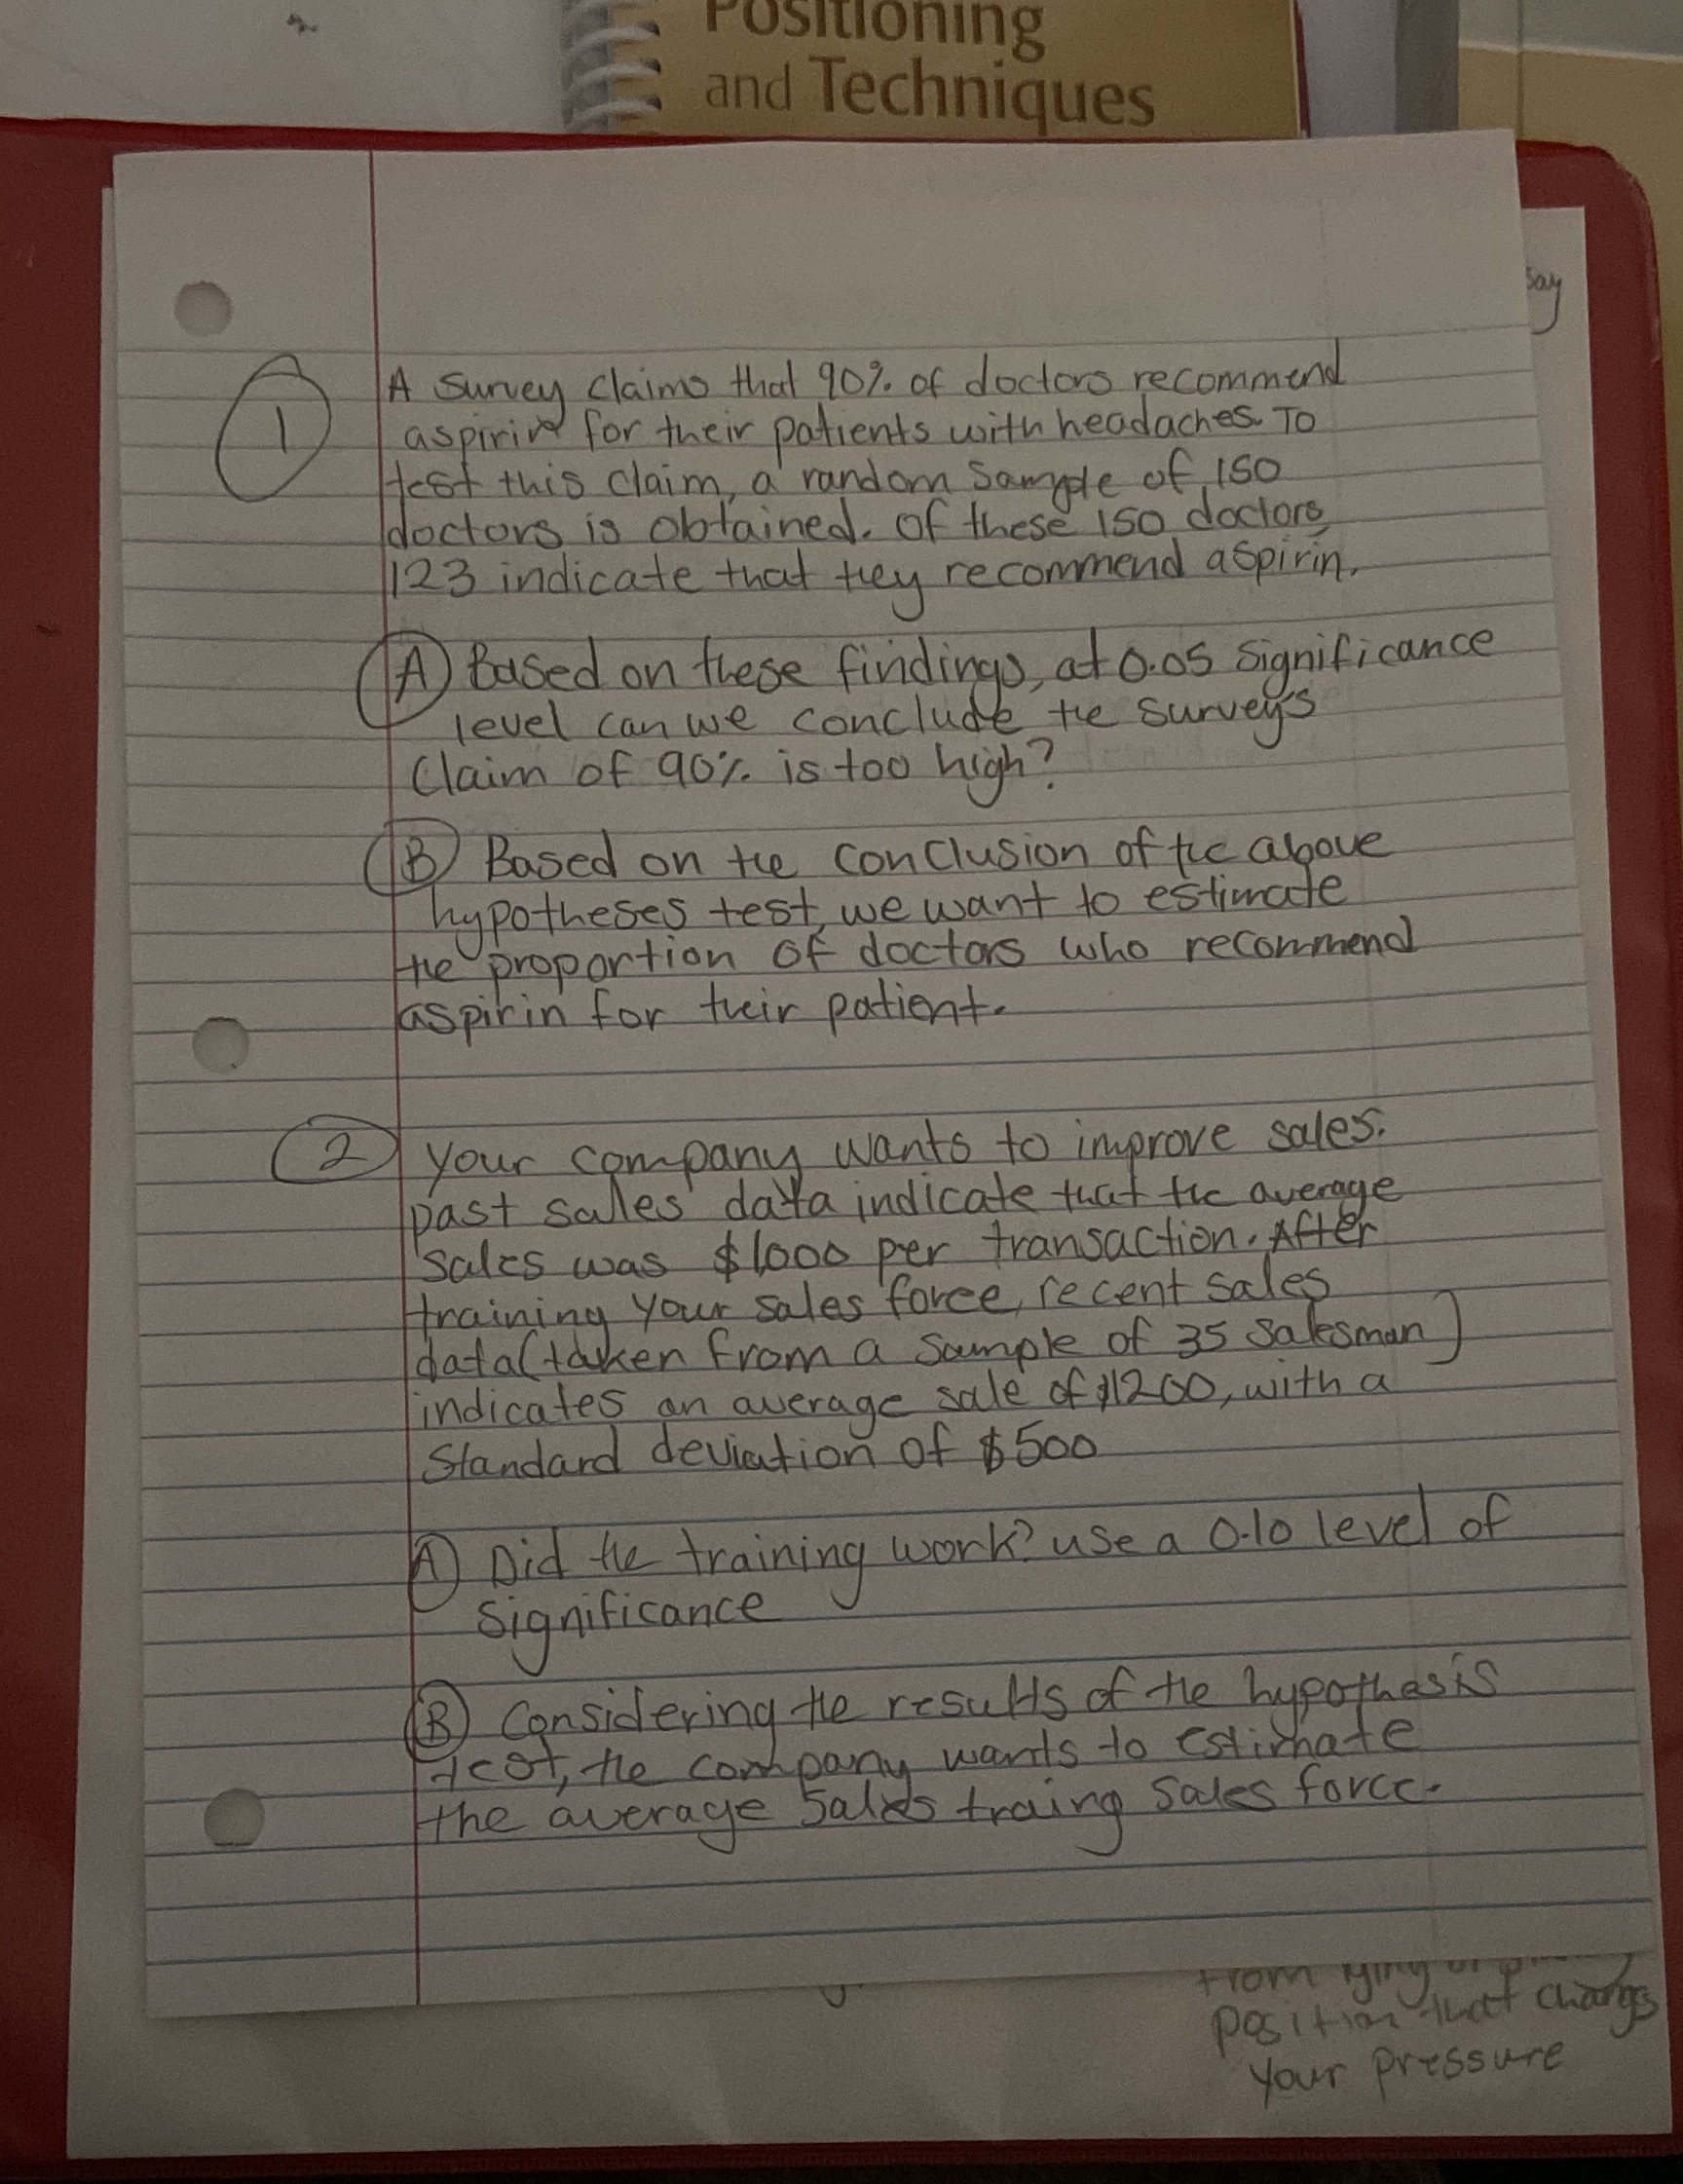 Positioning
and Techniques
say
1
A survey claims that 90% of doctors recommend
aspirin for their patients with headaches. To
test this claim, a random sample of 150
doctors is obtained. Of these 150 doctors,
123 indicate that they recommend aspirin.
A) Based on these findings, at 0.05 significance
level can we conclude the survey's
Claim of 90% is too high?
B) Based on the conclusion of the above
hypotheses test, we want to estimate
the proportion of doctors who recommend
aspirin for their patient.
2
Your company wants to improve sales.
past sales data indicate that the average
sales was $1000 per transaction. After
training your sales force, recent sales
data (taken from a sample of 35 salesman)
indicates an average sale of $1200, with a
Standard deviation of $500
A) Did the training work? use a 0.10 level of
significance
B) Considering the results of the hypothesis
test, the company wants to estimate
the average sales traing sales force.
from
position that changs
your pressure